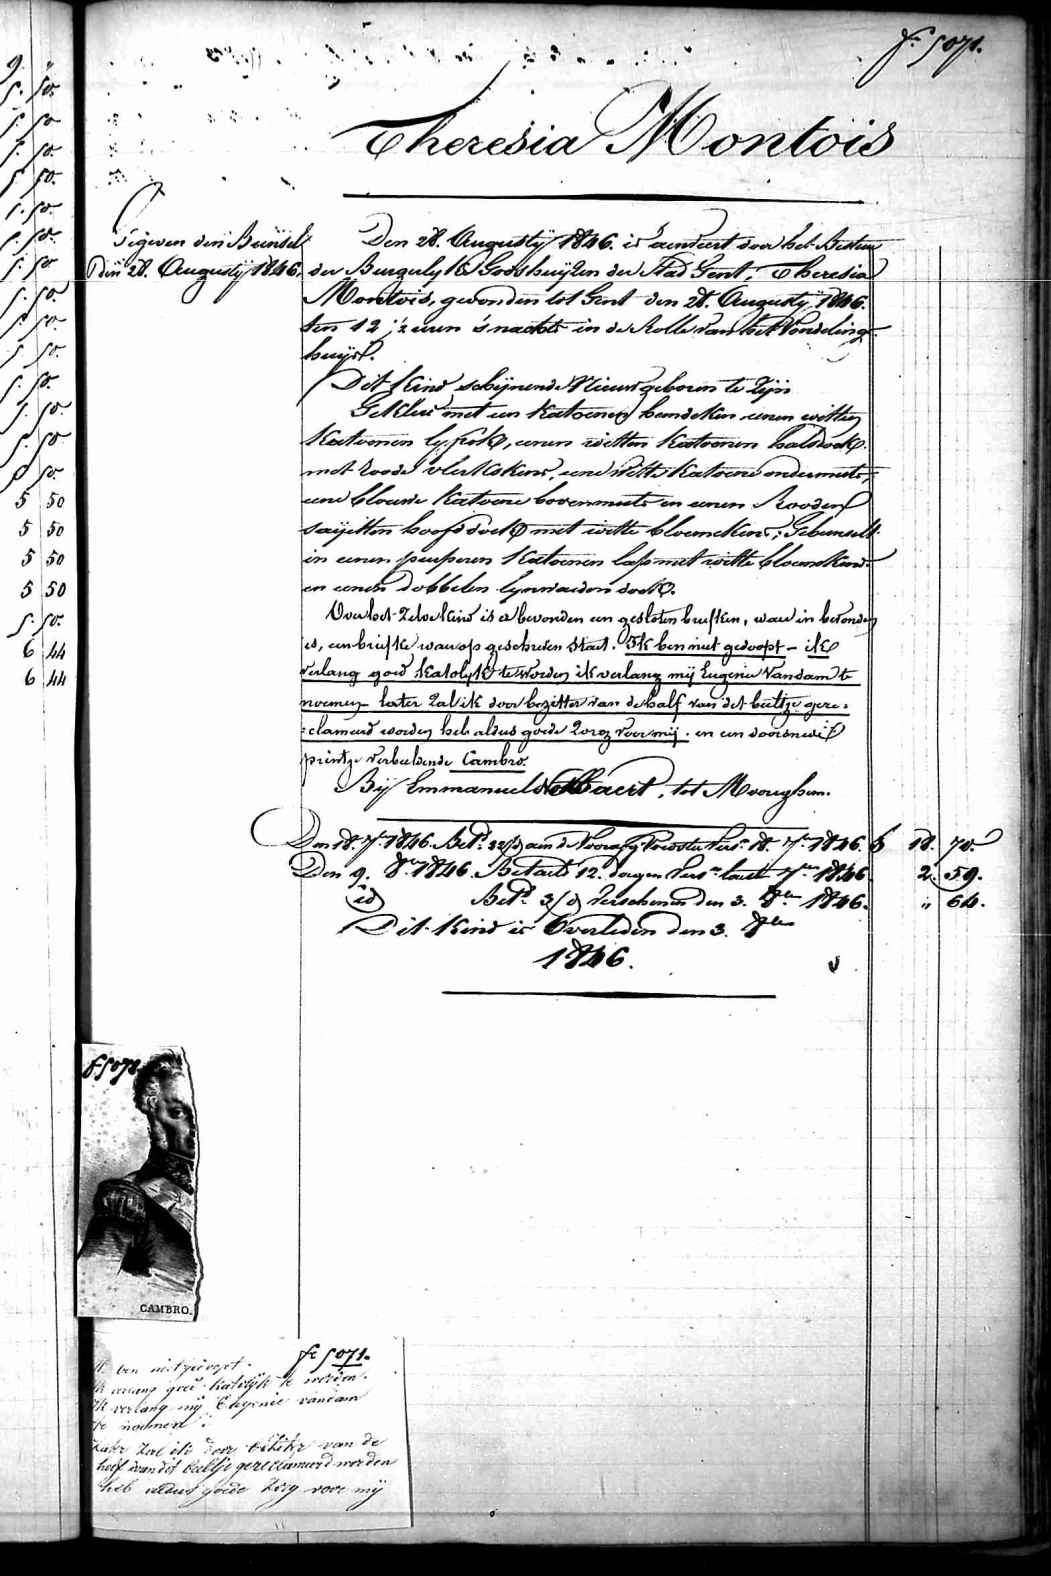 9.
5. 50.
5. 50
5. 50.
5 50.
5. 50
5. 50.
5. 50
5. 50
5. 50.
5 50.
5. 50.
5. 50.
5. 50
5 50.
5 50
5 50
5 50
5 50
5. 50.
6 44
6 44
fo 5071.
Theresia Montois
Gegeven den Bunsel
Den 28. Augusty 1846.
Den 28. Augusty 1846. is aenveert door het Bestuer
der Burgerlyke Godshuyzen der Stad Gent, Theresia
Montois, gevonden tot Gent den 28. Augusty 1846.
ten 12 ½ uren 's nachts in de Rolle van het Vondeling-
huys.
Dit Kind schynende Nieuw geboren te zyn
Gekleed met een Katoenen hemdeken eenen witten
Katoenen lyfrok, eenen witten Katoenen halsdoek
met roode vlekskens, eene witte Katoene ondermuts,
eene blouwe Katoene bovenmuts en eenen Rooden
sayetten hoofddoek met witte bloemekens; Gebunselt
in eenen peirperen Katoenen lap met witte bloemekens
en eenen dobbelen lynwaeden doek.
Over het zelve Kind is er bevonden een gesloten briefken, waer in bevonden
is, een briefke waer op geschreven staet. Ik ben niet gedoopt – ik
verlang goed Katolyk te worden ik verlang mij Eugenie Vandam te
noemen later zal ik door bezitter van de half van dit beeltje gere=
=clameerd worden heb aldus goede zorg voor mij. en een doorsneden
printje verbeeldende Cambro.
Bij Emmanuel Baert, tot Mooreghem.
Den 18. 7r 1846. Bet. 22/d aen de Voorafg Voedster Vers. 18. 7r 1846. 18. 70.
Den 9. 8r 1846. Betaelt 12. dagen Vers 7r 1846 2. 59.
id Bet. 3/d Verschenen den 3. 8r 1846. " 64.
Dit Kind is Overleden den 3. 8r
1846.
fo 5071
CAMBRO.
fo 5071.
Ik ben niet gedoopt.
Ik verlang goed katolijk te worden.
Ik verlang mij Eugenie vandam
te noemen.
Later zal ik door bezitter van de
helf van dit beeltje gereclameerd worden
heb aldus goede zorg voor mij